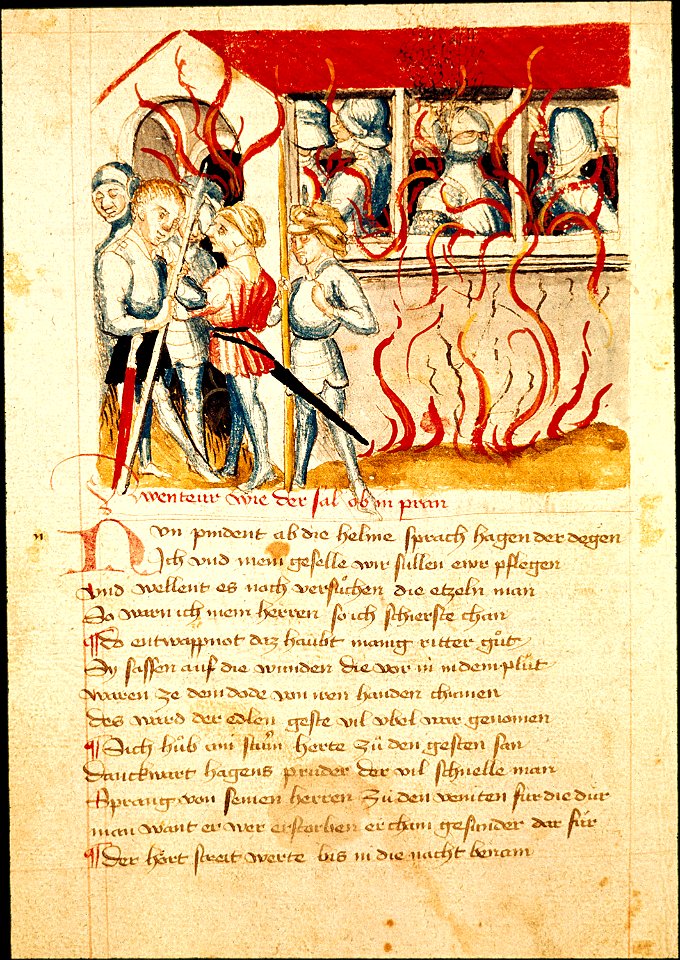 Awenteur wie der sal ob in pran
Nvn pindent ab die helme sprach hagen der degen
Ich vnd mein geselle wir sullen ewr pflegen
vnd wellent es noch versůchen die etzeln man
So warn ich mein herren so ich schierste chan
¶ Do entwappnot daz haubt manig ritter gůt
Sy sassen auf die wunden die vor in in dem plůt
waren ze dem dode von iren handen chumen
des ward der edlen geste vil vbel war genomen
¶ Sich hůb ain sturm herte zů den gesten san
danckwart hagens průder der vil schnelle man
Sprang von seinen herren zů den veinten für die dür
man want er wer erstorben er cham gesunder dar für
¶ Der hört streit werte bis in die nacht benam